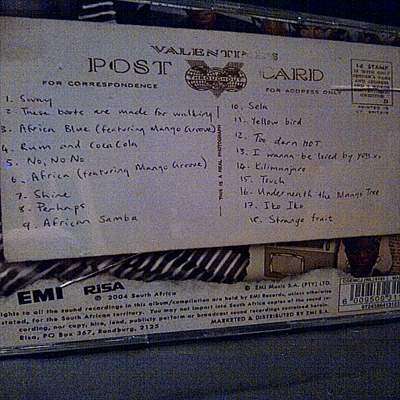 VALENTINE'S
POST CARD
THROUGHOUT
FOR CORRESPONDENCE
FOR ADDRESS ONLY
THIS IS A REAL PHOTOGRAPH
1. Sway
2. These boots are made for walking
3. Africa Blue (featuring Mango Groove)
4. Rum and Coca Cola
5. No, No No
6. Africa (featuring Mango Groove)
7. Shine
8. Perhaps
9. African Samba
10. Sela
11. Yellow bird
12. Too darn HOT
13. I wanna be loved by you
14. Kilimanjaro
15. Touch
16. Underneath the Mango Tree
17. Iko Iko
18. Strange fruit
EMI RISA
℗ © 2004 South Africa
© EMI Music S.A. (PTY) LTD.
rights to all the sound recordings in this album/compilation are held by EMI Records, unless otherwise
stated, for the South African territory. You may not loan any part of the sound
cording, nor copy, hire, lend, publicly perform or broadcast sound recordings
Risa, PO Box 367, Randburg, 2125
MARKETED & DISTRIBUTED BY EMI S.A.